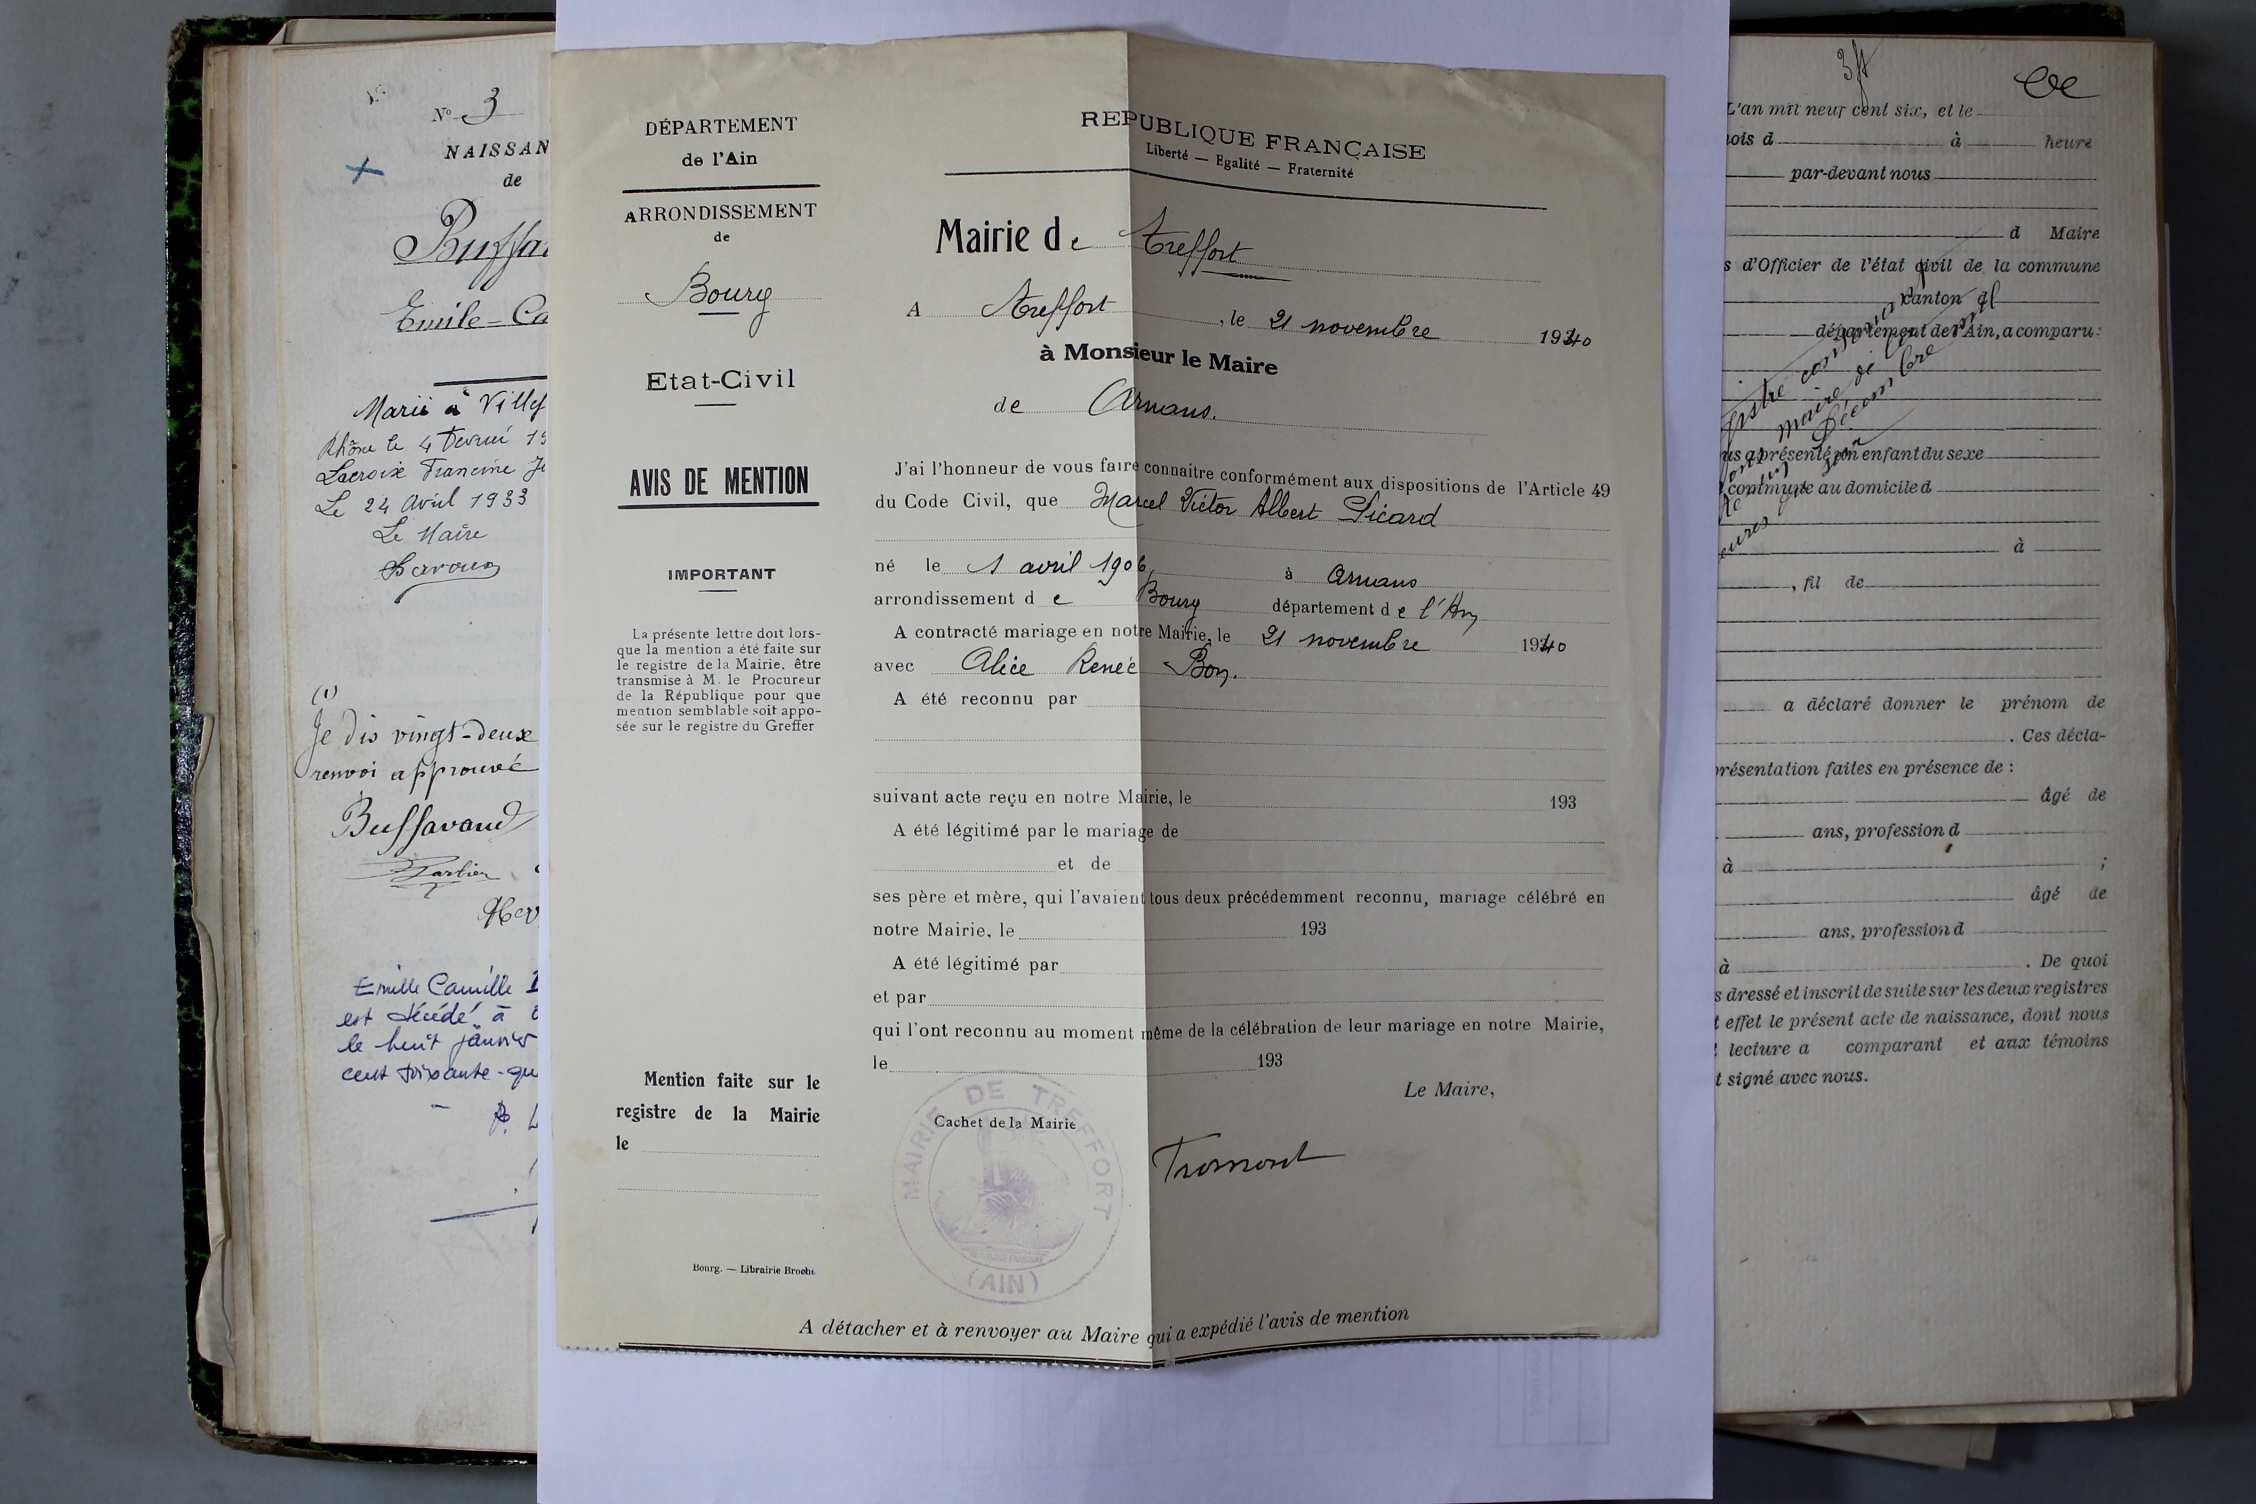 Nº 3
NAISSAN
de
Buffa
Emile-Ca
Marié à Villef
Rhône le 4
Lacroix Francine
Le 24 Avril 1933
Le Maire
(1)
Je dis vingt-deux
renvoi approuvé
Buffavand
Emile Camille
est décédé à
le huit janvier
cent soixante-qu
DÉPARTEMENT
de l'Ain
ARRONDISSEMENT
de
Bourg
Etat-Civil
AVIS DE MENTION
IMPORTANT
La présente lettre doit lors-
que la mention a été faite sur
le registre de la Mairie, être
transmise à M. le Procureur
de la République pour que
mention semblable soit appo-
sée sur le registre du Greffer
Mention faite sur le
registre de la Mairie
le
Bourg. — Librairie Broch
REPUBLIQUE FRANÇAISE
Liberté — Egalité — Fraternité
Mairie de Treffort
A Treffort, le 21 novembre 1940
à Monsieur le Maire
de Arnans.
J'ai l'honneur de vous faire connaitre conformément aux dispositions de l'Article 49
du Code Civil, que Marcel Victor Albert Sicard
né le 1 avril 1906, à Arnans
arrondissement de Bourg département de l'Ain
A contracté mariage en notre Mairie, le 21 novembre 1940
avec Alice Renée Bon.
A été reconnu par
suivant acte reçu en notre Mairie, le 193
A été légitimé par le mariage de
et de
ses père et mère, qui l'avaient tous deux précédemment reconnu, mariage célébré en
notre Mairie, le 193
A été légitimé par
et par
qui l'ont reconnu au moment même de la célébration de leur mariage en notre Mairie,
le 193
Le Maire,
Cachet de la Mairie
MAIRIE DE TREFFORT
(AIN)
A détacher et à renvoyer au Maire qui a expédié l'avis de mention
L'an mil neuf cent six, et le
ois d à heure
par-devant nous
d Maire
s d'Officier de l'état civil de la commune
canton d
département de l'Ain, a comparu :
us a présenté un enfant du sexe
commune au domicile d
à
, fil de
a déclaré donner le prénom de
. Ces décla-
présentation faites en présence de :
âgé de
ans, profession d
à ;
âgé de
ans, profession d
à . De quoi
s dressé et inscrit de suite sur les deux registres
t effet le présent acte de naissance, dont nous
lecture a comparant et aux témoins
t signé avec nous.